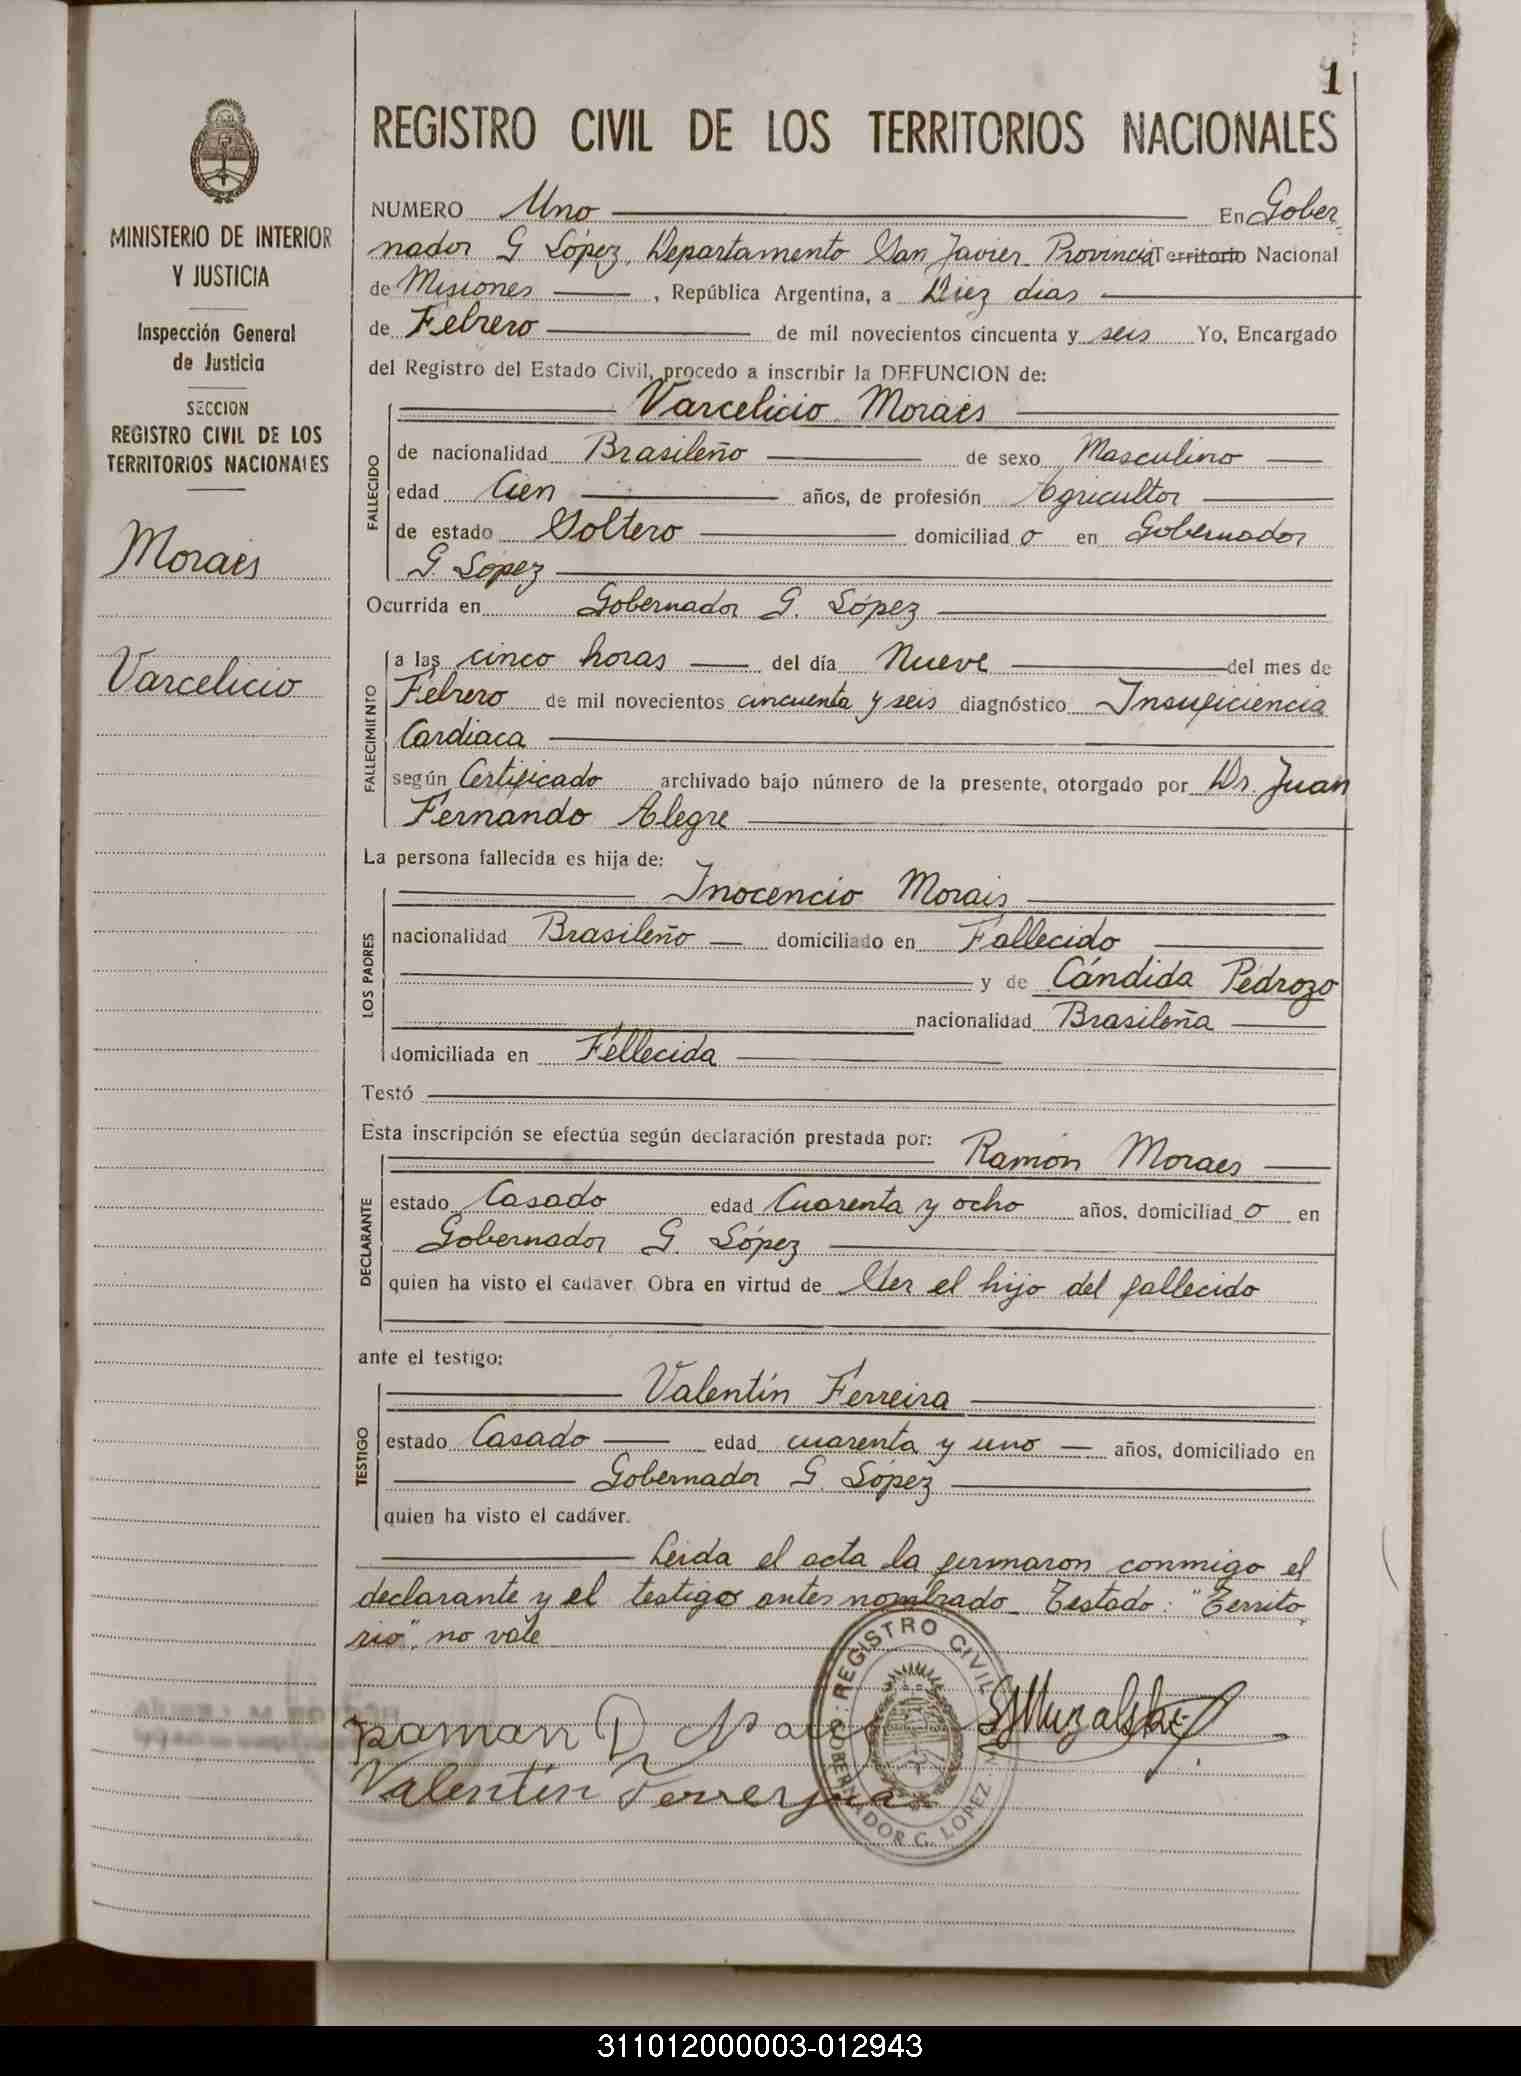 1
REGISTRO CIVIL DE LOS TERRITORIOS NACIONALES
MINISTERIO DE INTERIOR
Y JUSTICIA
Inspección General
de Justicia
SECCION
REGISTRO CIVIL DE LOS
TERRITORIOS NACIONALES
Moraes
Varcelicio
NUMERO Uno En Gober
nador G López, Departamento San Javier Provincia Territorio Nacional
de Misiones, República Argentina, a Diez días
de Febrero de mil novecientos cincuenta y seis Yo, Encargado
del Registro del Estado Civil, procedo a inscribir la DEFUNCION de:
Varcelicio Moraes
FALLECIDO
de nacionalidad Brasileño de sexo Masculino
edad Cien años, de profesión Agricultor
de estado Soltero domiciliad o en Gobernador
G. López
Ocurrida en Gobernador G. López
FALLECIMIENTO
a las cinco horas del día Nueve del mes de
Febrero de mil novecientos cincuenta y seis diagnóstico Insuficiencia
Cardiaca
según Certificado archivado bajo número de la presente, otorgado por Dr. Juan
Fernando Alegre
La persona fallecida es hija de:
LOS PADRES
Inocencio Morais
nacionalidad Brasileño domiciliado en Fallecido
y de Cándida Pedrozo
nacionalidad Brasileña
domiciliada en Fellecida
Testó
Esta inscripción se efectúa según declaración prestada por:
DECLARANTE
Ramón Moraes
estado Casado edad Cuarenta y ocho años, domiciliad o en
Gobernador G. López
quien ha visto el cadáver. Obra en virtud de Ser el hijo del fallecido
ante el testigo:
TESTIGO
Valentín Ferreira
estado Casado edad cuarenta y uno años, domiciliado en
Gobernador G. López
quien ha visto el cadáver.
Leida el acta la firmaron conmigo el
declarante y el testigo antes nombrado Testado: "Territo
rio", no vale
REGISTRO CIVIL
GOBERNADOR G. LOPEZ
Valentin
311012000003-012943